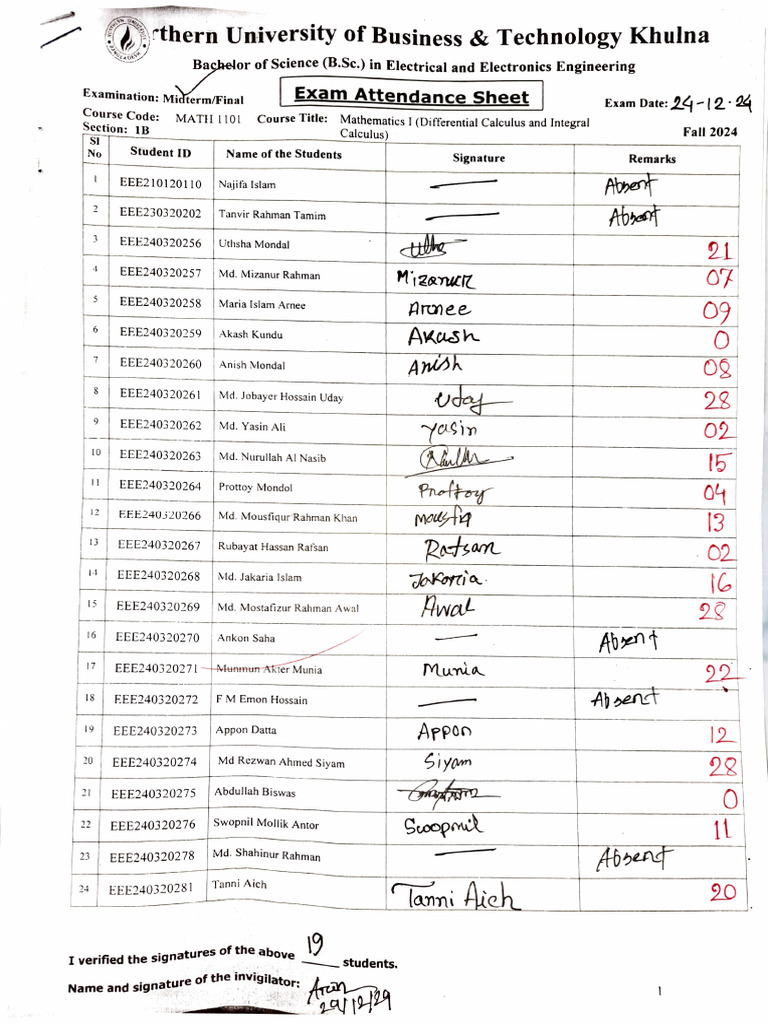 rthern University of Business & Technology Khulna
Bachelor of Science (B.Sc.) in Electrical and Electronics Engineering
Examination: Midterm/Final
Exam Attendance Sheet
Exam Date: 24-12-24
Course Code: MATH 1101 Course Title: Mathematics I (Differential Calculus and Integral Calculus)
Section: 1B
Fall 2024
Sl No Student ID Name of the Students Signature Remarks
1 EEE210120110 Najifa Islam — Absent
2 EEE230320202 Tanvir Rahman Tamim — Absent
3 EEE240320256 Uthsha Mondal 21
4 EEE240320257 Md. Mizanur Rahman Mizanur 07
5 EEE240320258 Maria Islam Arnee Arnee 09
6 EEE240320259 Akash Kundu Akash 0
7 EEE240320260 Anish Mondal Anish 08
8 EEE240320261 Md. Jobayer Hossain Uday Uday 28
9 EEE240320262 Md. Yasin Ali Yasin 02
10 EEE240320263 Md. Nurullah Al Nasib 15
11 EEE240320264 Prottoy Mondol Prottoy 04
12 EEE240320266 Md. Mousfiqur Rahman Khan Mousfiq 13
13 EEE240320267 Rubayat Hassan Rafsan Rafsan 02
14 EEE240320268 Md. Jakaria Islam Jakaria. 16
15 EEE240320269 Md. Mostafizur Rahman Awal Awal 28
16 EEE240320270 Ankon Saha — Absent
17 EEE240320271 Munmun Akter Munia Munia 22
18 EEE240320272 F M Emon Hossain — Absent
19 EEE240320273 Appon Datta Appon 12
20 EEE240320274 Md Rezwan Ahmed Siyam Siyam 28
21 EEE240320275 Abdullah Biswas 0
22 EEE240320276 Swopnil Mollik Antor Swopnil 11
23 EEE240320278 Md. Shahinur Rahman — Absent
24 EEE240320281 Tanni Aich Tanni Aich 20
I verified the signatures of the above 19 students.
Name and signature of the invigilator:
1